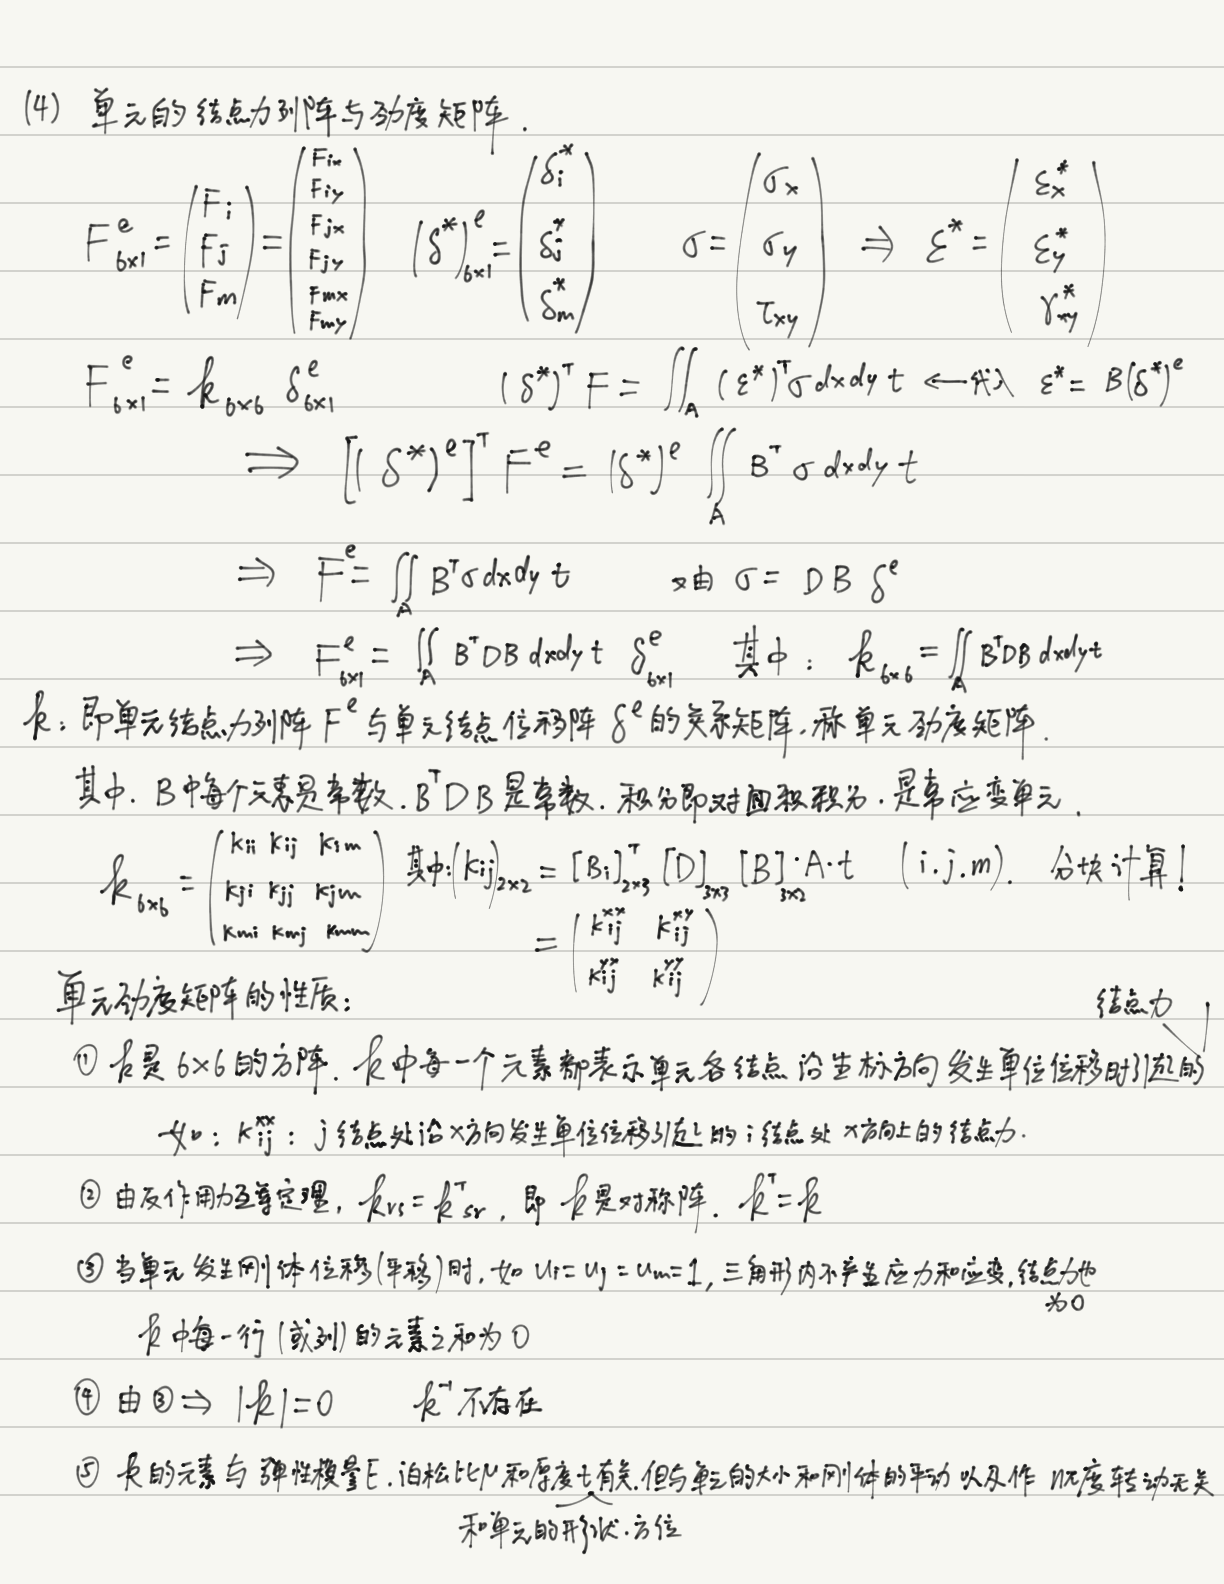 (4) 单元的结点力列阵与劲度矩阵.
F^e_{6×1} = (F_i F_j F_m) = (F_{ix} F_{iy} F_{jx} F_{jy} F_{mx} F_{my}) (δ^*)^e_{6×1} = (δ_i^* δ_j^* δ_m^*) σ = (σ_x σ_y τ_{xy}) ⇒ ε^* = (ε_x^* ε_y^* γ_{xy}^*)
F^e_{6×1} = k_{6×6} δ^e_{6×1} (δ^*)^T F = ∬_A (ε^*)^T σ dxdy t ← 代入 ε^* = B(δ^*)^e
⇒ [(δ^*)^e]^T F^e = (δ^*)^e ∬_A B^T σ dxdy t
⇒ F^e = ∬_A B^T σ dxdy t 又由 σ = DB δ^e
⇒ F^e_{6×1} = ∬_A B^T DB dxdy t δ^e_{6×1} 其中: k_{6×6} = ∬_A B^T DB dxdy t
k: 即单元结点力列阵 F^e 与单元结点位移阵 δ^e 的关系矩阵, 称单元劲度矩阵.
其中. B中每个元素是常数. B^T D B 是常数. 积分即对面积积分. 是常应变单元.
k_{6×6} = (k_{ii} k_{ij} k_{im} k_{ji} k_{jj} k_{jm} k_{mi} k_{mj} k_{mm}) 其中: (k_{ij})_{2×2} = [B_i]^T_{2×3} [D]_{3×3} [B]_{3×2}·A·t (i.j.m). 分块计算!
= (k_{ij}^{xx} k_{ij}^{xy} k_{ij}^{yx} k_{ij}^{yy})
单元劲度矩阵的性质:
① k是6×6的方阵. k中每一个元素都表示单元各结点沿坐标方向发生单位位移时引起的结点力
如: k_{ij}^{xx}: j结点处沿x方向发生单位位移引起的i结点处x方向上的结点力.
② 由反作用力互等定理, k_{rs} = k_{sr}^T, 即 k是对称阵. k^T = k
③ 当单元发生刚体位移(平移)时, 如 u_i = u_j = u_m = 1, 三角形内不产生应力和应变, 结点力也为0
k中每一行(或列)的元素之和为0
④ 由③ ⇒ |k| = 0 k^{-1}不存在
⑤ k的元素与弹性模量E. 泊松比μ和厚度t有关. 但与单元的大小和刚体的平动以及作nπ度转动无关
和单元的形状.方位